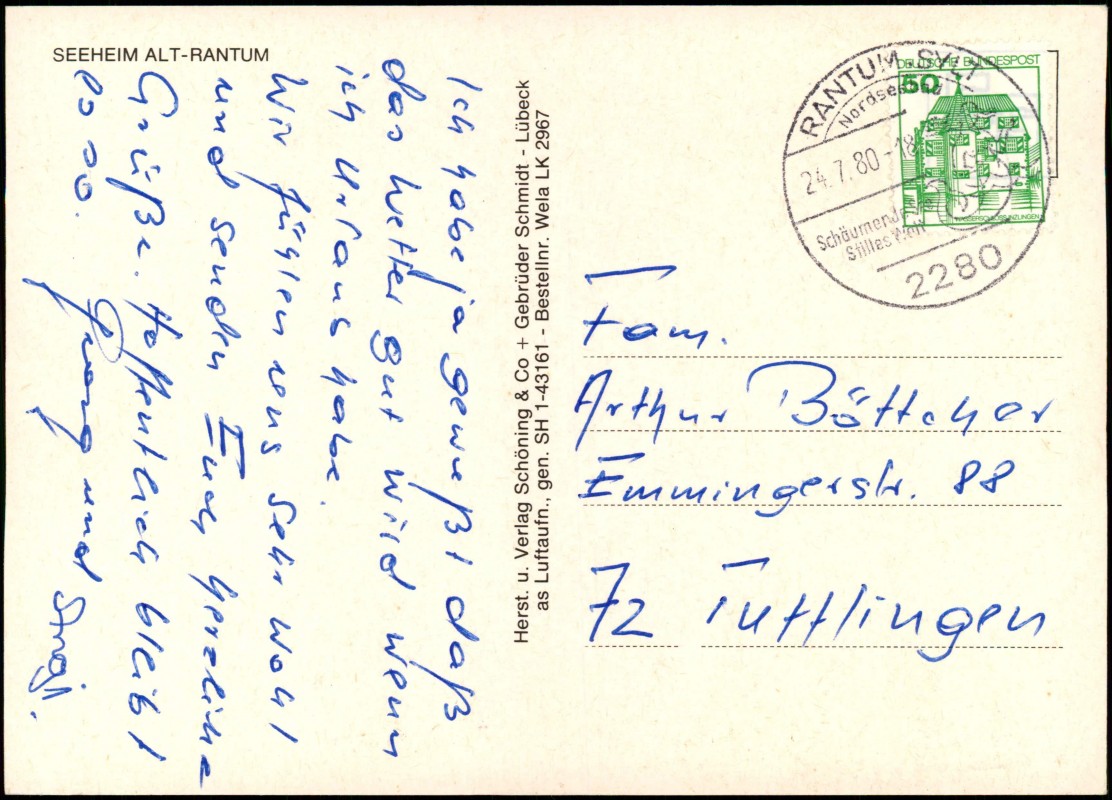 SEEHEIM ALT-RANTUM
Ich habe ja gewußt daß
das Wetter gut wird wenn
ich Urlaub habe.
Wir fühlen uns sehr wohl
und senden Euch herzliche
Grüße. Hoffentlich bleibt
es so.
und
Herst. u. Verlag Schöning & Co + Gebrüder Schmidt - Lübeck
als Luftaufn., gen. SH 1-43161 - Bestellnr. Wela LK 2967
DEUTSCHE BUNDESPOST
50
WASSERSCHLOSS INZLINGEN
RANTUM SYLT
Nordseebad
24.7.80-18
Schäumende See
Stilles Watt
2280
Fam.
Arthur Böttcher
Emmingerstr. 88
72 Tuttlingen